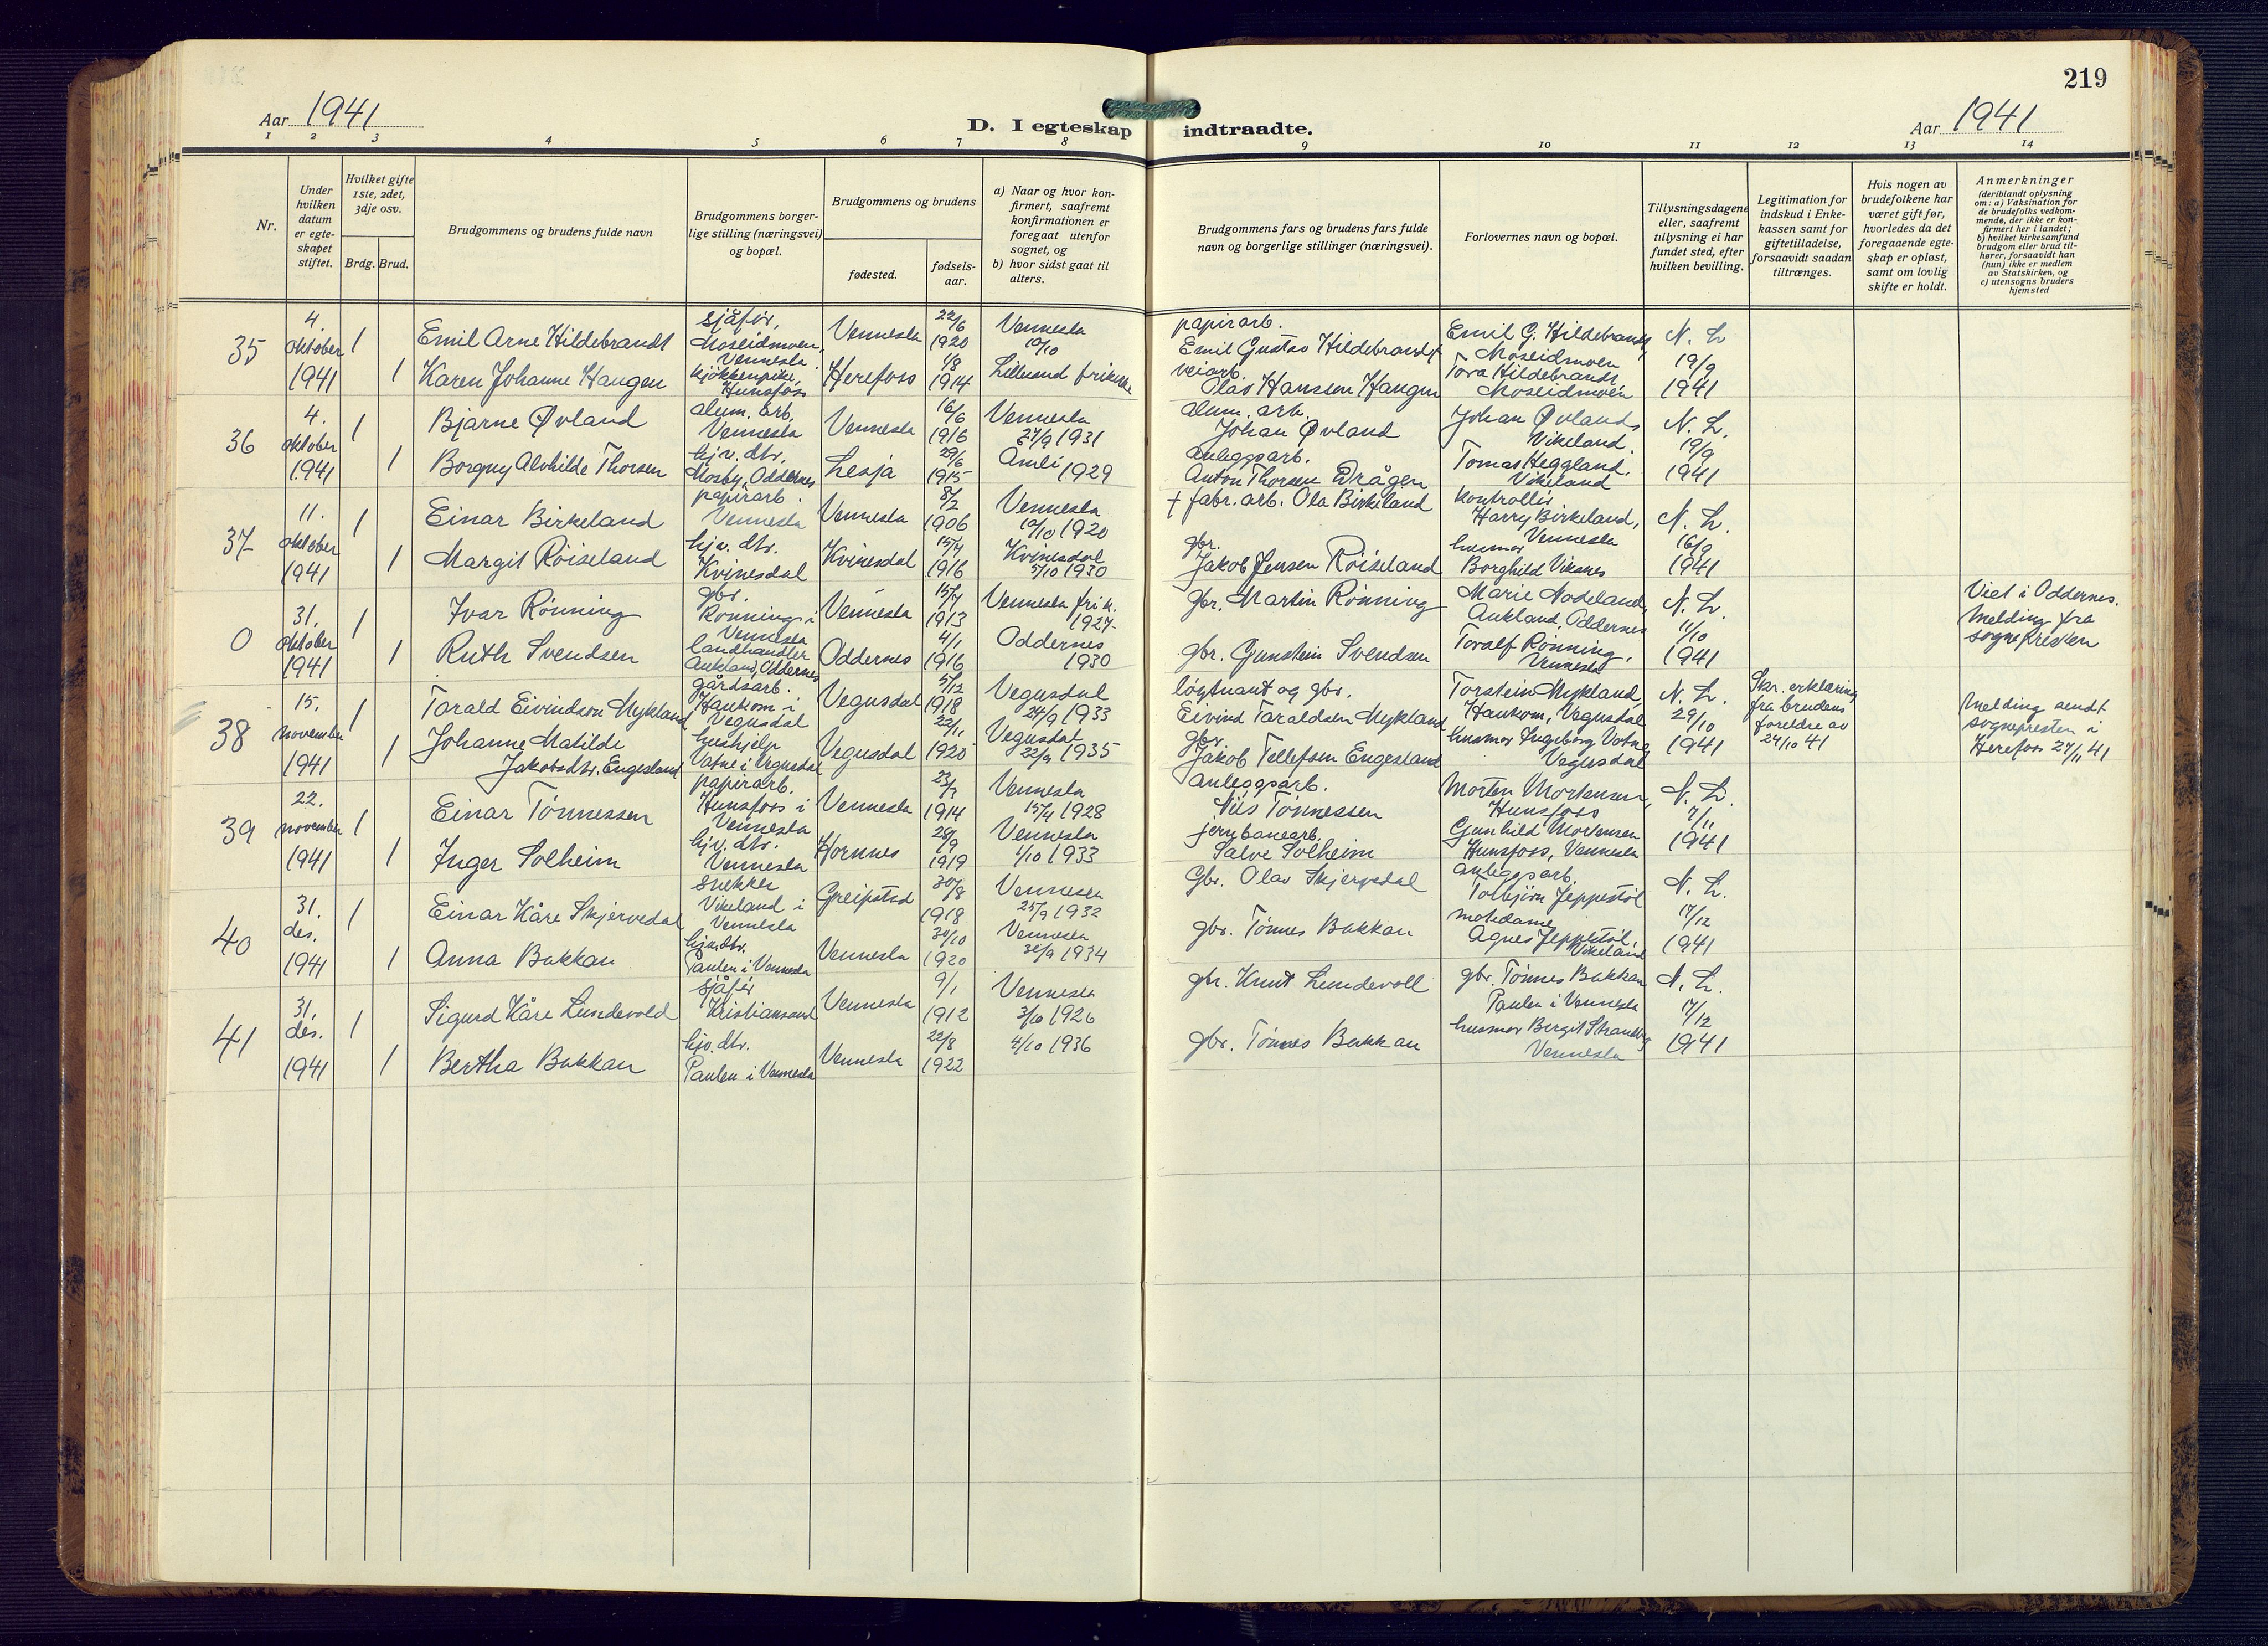 219
Aar 1941
D. I egteskap indtraadte.
Aar 1941
1 2 3 4 5 6 7 8 9 10 11 12 13 14
Nr.
Under hvilken datum er egte-skapet stiftet.
Hvilket gifte 1ste, 2det, 3dje osv.
Brdg. Brud.
Brudgommens og brudens fulde navn
Brudgommens borger-lige stilling (næringsvei) og bopæl.
Brudgommens og brudens
fødested.
fødsels-aar.
a) Naar og hvor kon-firmert, saafremt konfirmationen er foregaat utenfor sognet, og
b) hvor sidst gaat til alters.
Brudgommens fars og brudens fars fulde navn og borgerlige stillinger (næringsvei).
Forlovernes navn og bopæl.
Tillysningsdagene eller, saafremt tillysning ei har fundet sted, efter hvilken bevilling.
Legitimation for indskud i Enke-kassen samt for giftetilladelse, forsaavidt saadan tiltrænges.
Hvis nogen av brudefolkene har været gift før, hvorledes da det foregaaende egte-skap er opløst, samt om lovlig skifte er holdt.
Anmerkninger
(deriblandt oplysning om: a) Vaksination for de brudefolks vedkom-mende, der ikke er kon-firmert her i landet; b) hvilket kirkesamfund brudgom eller brud til-hører, forsaavidt han (hun) ikke er medlem av Statskirken, og c) utensogns bruders hjemsted
35 4. oktober 1941
1 Emil Arne Hildebrandt sjåfør, Moseidmoen, Vennesla Vennesla 22/6 1920 Vennesla 10/10 papirarb. Emil Gustav Hildebrandt Emil G. Hildebrandt, Moseidmoen N. L. 19/9 1941
1 Karen Johanne Haugen kjøkkenpike, Hunsfoss Herefoss 1/8 1914 Lillesand frikirke veiarb. Olav Hansen Haugen Tora Hildebrandt Moseidmoen
36 4. oktober 1941
1 Bjarne Øvland alum. arb. Vennesla Vennesla 16/6 1916 Vennesla 27/9 1931 alum. arb. Johan Øvland Johan Øvland, Vikeland N. L. 19/9 1941
1 Borgny Alvhilde Thorsen hjv. dtr. Mosby, Oddernes Lesja 29/6 1915 Åmli 1929 anleggsarb. Anton Thorsen Drågen Tomas Heggland, Vikeland
37 11. oktober 1941
1 Einar Birkeland papirarb. Vennesla Vennesla 8/2 1906 Vennesla 10/10 1920 + fabr. arb. Ola Birkeland kontrollør Harry Birkeland, Vennesla N. L. 16/9 1941
1 Margit Røiseland hjv. dtr. Kvinesdal Kvinesdal 15/4 1916 Kvinesdal 5/10 1930 gbr. Jakob Jensen Røiseland husmor Borghild Viksnes
0 31. oktober 1941
1 Ivar Rønning gbr. Rønning i Vennesla Vennesla 1913 Vennesla frik. 1927 gbr. Martin Rønning Marie Nodeland, Aukland, Oddernes N. L. 11/10 1941 Viet i Oddernes. Melding fra sognepresten
1 Ruth Svendsen landhandler Aukland, Oddernes Oddernes 4/1 1916 Oddernes 1930 gbr. Gunstein Svendsen Toralf Rønning, Vennesla
38 15. november 1941
1 Tarald Eivindson Mykland gårdsarb. Haukom i Vegusdal Vegusdal 5/12 1918 Vegusdal 24/9 1933 løytnant og gbr. Eivind Taraldsen Mykland Torstein Mykland, Haukom, Vegusdal N. L. 29/10 1941 Skr. erklæring fra brudens foreldre av 24/10 41 Melding sendt sognepresten i Herefoss 27/11 41
1 Johanne Matilde Jakobsdtr. Engesland hushjelp Vatne i Vegusdal Vegusdal 22/11 1920 Vegusdal 22/9 1935 gbr. Jakob Tellefsen Engesland husmor Ingeborg Vatne, Vegusdal
39 22. november 1941
1 Einar Tønnessen papirarb. Hunsfoss i Vennesla Vennesla 1914 Vennesla 15/4 1928 anleggsarb. Nils Tønnessen Morten Mortensen, Hunsfoss N. L. 7/11 1941
1 Inger Solheim hjv. dtr. Vennesla Hornnes 1919 Vennesla 1/10 1933 jernbanearb. Salve Solheim Gunhild Mortensen Hunsfoss, Vennesla
40 31. des. 1941
1 Einar Kåre Skjervedal snekker Vikeland i Vennesla Greipstad 30/8 1918 Vennesla 25/9 1932 Gbr. Olav Skjervedal anleggsarb. Torbjørn Jeppestøl N. L. 17/12 1941
1 Anna Bakkan hjv. dtr. Paulen i Vennesla Vennesla 30/10 1920 Vennesla 30/9 1934 gbr. Tønnes Bakkan motedame Agnes Jeppestøl, Vikeland
41 31. des. 1941
1 Sigurd Kåre Lundevold sjåfør Kristiansand Vennesla 9/1 1912 Vennesla 3/10 1926 gbr. Knut Lundevoll gbr. Tønnes Bakkan Paulen i Vennesla N. L. 17/12 1941
1 Bertha Bakkan hjv. dtr. Paulen i Vennesla Vennesla 22/8 1922 4/10 1936 gbr. Tønnes Bakkan husmor Bergit Vennesla